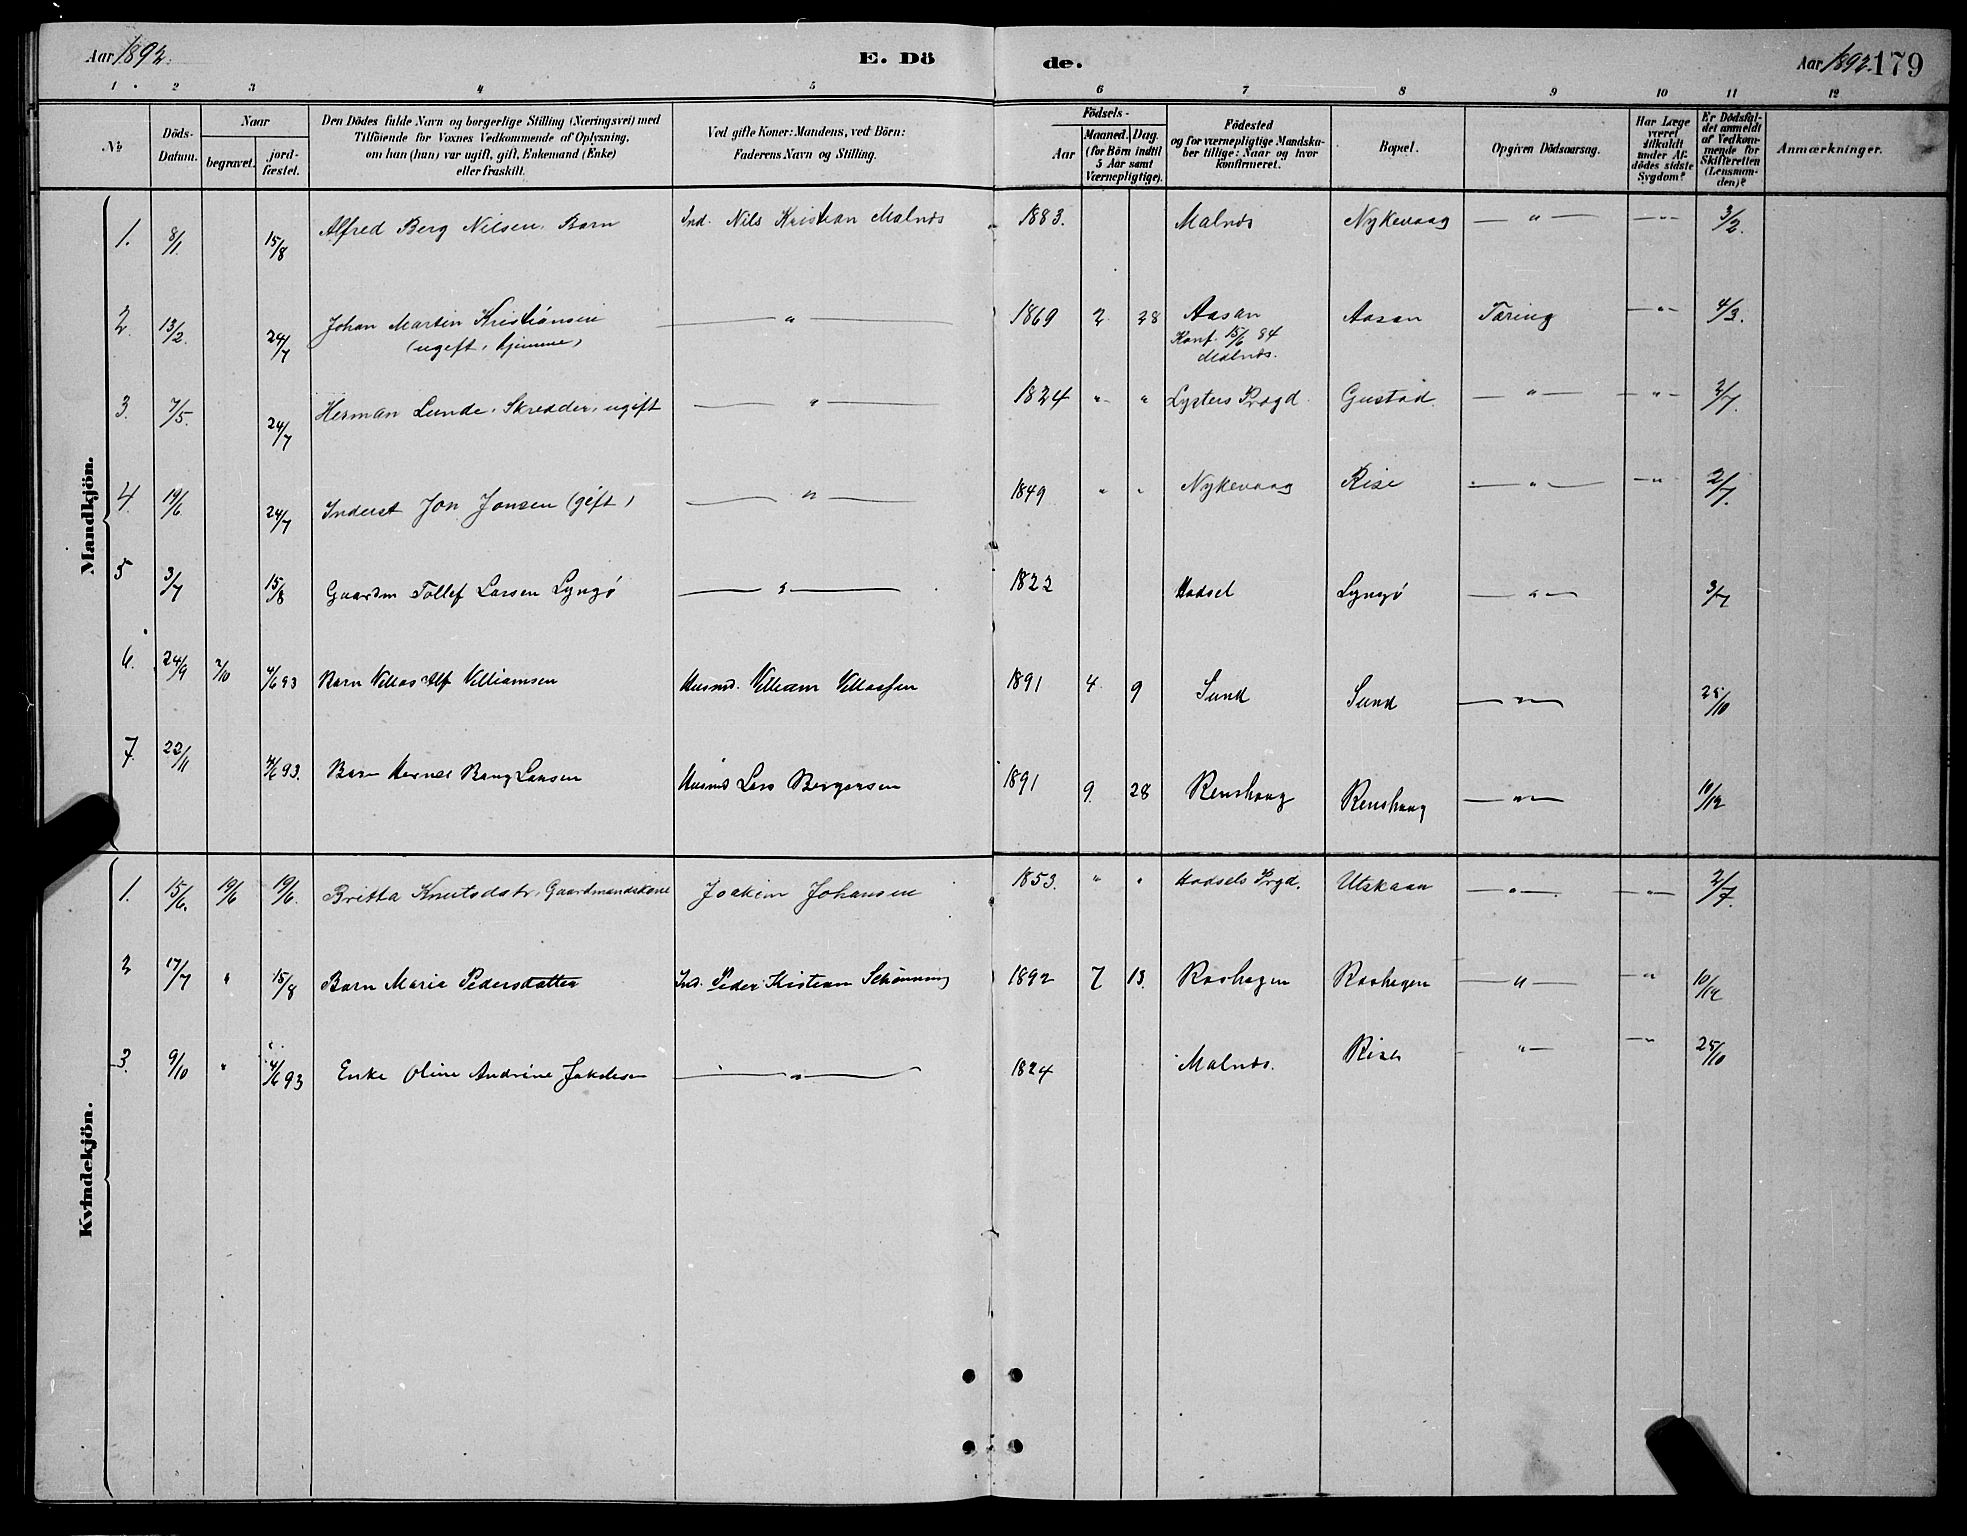 Aar 1892. E. Dö de. Aar 1892. 179
1 2 3 4 5 6 7 8 9 10 11 12
№
Döds-Datum.
Naar
begravet.
jord-fæstet.
Den Dödes fulde Navn og borgerlige Stilling (Næringsvei) med
Tilföiende for Voxnes Vedkommende af Oplysning,
om han (hun) var ugift, gift, Enkemand (Enke)
eller fraskilt.
Ved gifte Koner: Mandens, ved Börn:
Faderens Navn og Stilling.
Födsels-
Aar
Maaned. Dag.
(for Börn indtil
5 Aar samt
Værnepligtige).
Födested
og for værnepligtige Mandska-
ber tillige: Naar og hvor
konfirmeret.
Bopæl.
Opgiven Dödsaarsag.
Har Læge
været
tilkaldt
under Af-
dödes sidste
Sygdom?
Er Dödsfal-
det anmeldt
af Vedkom-
mende for
Skifteretten
(Lensman-
den)?
Anmærkninger.
Mandkjön.
1. 8/1. 15/8 Alfred Berg Nilsen, Barn Ind. Nils Kristian Malnes 1883. Malnes Nykevaag — " — — " — 3/2.
2. 13/2. 24/7 Johan Martin Kristiansen — " — 1869 2 28 Aasan Aasan Tæring — " — 4/3.
(ugift, hjemme) Konf. 15/6 84
Malnes.
3. 7/5. 24/7 Herman Lunde, Skrædder, ugift — " — 1824 " " Lysters Prægd. Gustad. — " — — " — 2/7.
4. 19/6 24/7 Inderst Jon Jonsen (gift) — " — 1849 " " Nykevaag Rise — " — — " — 2/7.
5 3/7 15/8 Gaardm Tollef Larsen Lyngö — " — 1822 Hadsel Lyngö — " — 3/7
6. 24/9 2/10 4/6 93 Barn Villas Alf Villiamsen Husmd. Villiam Villassen 1891 4 9 Sund Sund — " — 25/10
7. 22/11 4/6 93. Barn Bang Larsen Husmd Lars Bergersen 1891 9. 28 Renshaug Renshaug — " — 10/12
Kvindekjön.
1. 15/6. 19/6 19/6. Britta Knutsdatr, Gaardmandskone Joakim Johansen 1853. " " Hadsels Prgd. Utskaan — " — — " — 2/7.
2 17/7 " 15/8 Barn Maria Pedersdatter Ind. Peder Kistian Schönning 1892 7 13. Roshagen Roshagen — " — — " — 10/12
3. 9/10 " 4/6 93 Enke Oline Andrine Jakobsen — " — 1824 Malnes. Rise — " — — " — 25/10